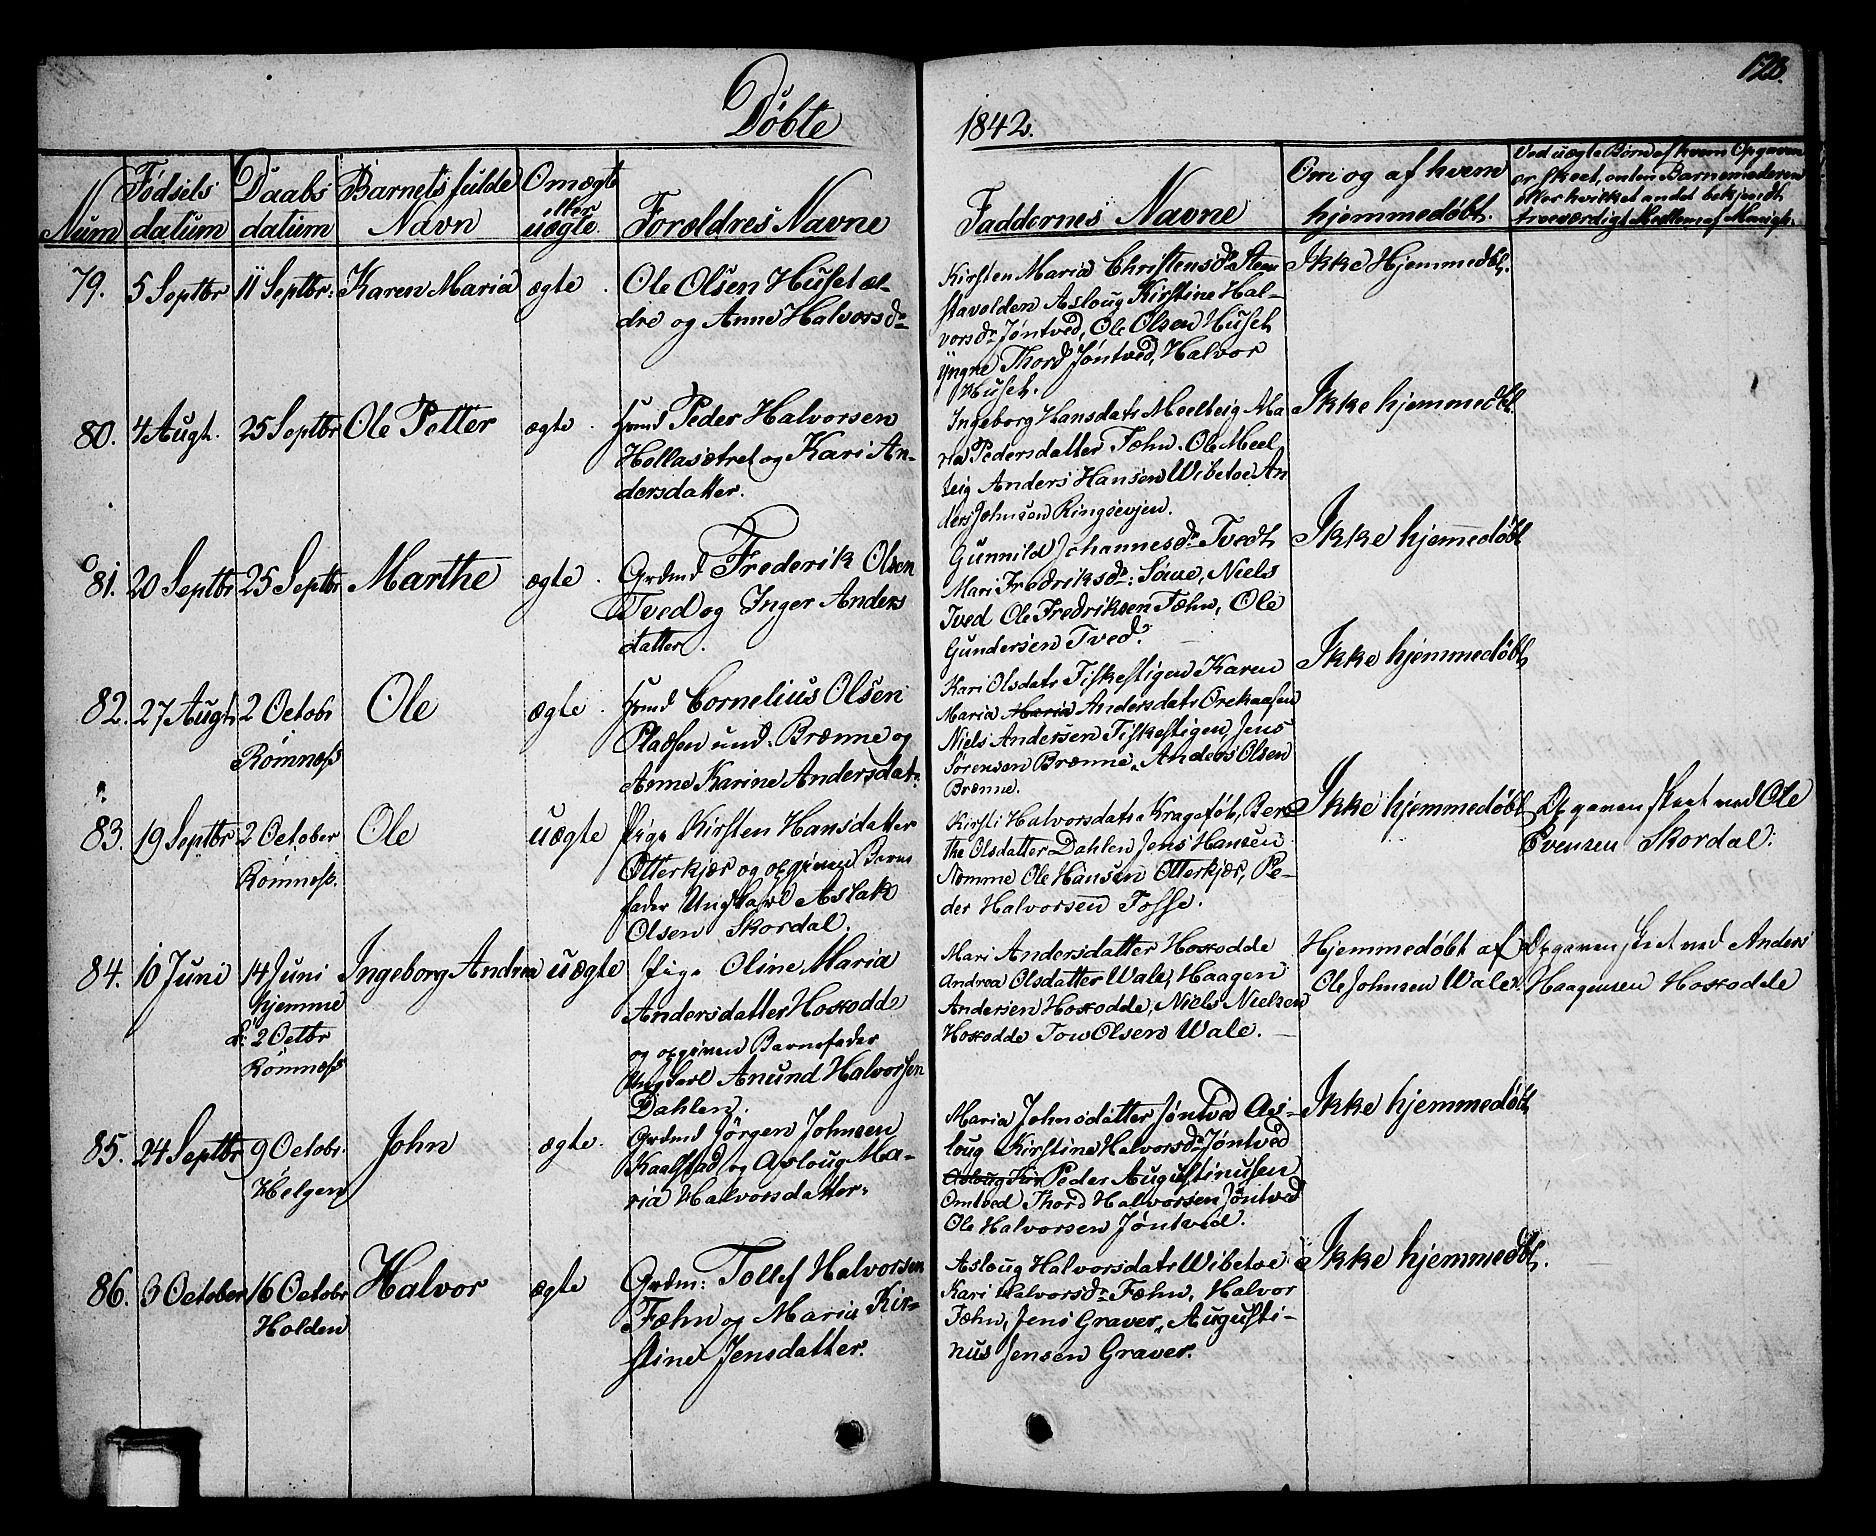 128.
Døbte 1842.
Num
Fødsels datum
Daabs datum
Barnets fulde Navn
Om ægte eller uægte
Forældres Navne
Faddernes Navne
Om og af hvem hjemmedøbt.
Ved uægte Børn af hvem Opgaven
er skeet, enten Barnemoderen
eller hvilket andet bekjendt
troeværdigt Medlem af Menigh:
79. 5 Septbr 11 Septbr: Karen Maria ægte
Ole Olsen Huset æl-
dre og Anne Halvorsdr
Kirsten Maria Christensdr Sten
stavolden Asloug Kirstine Hal-
vorsdr Jøntved, Ole Olsen Huset
yngre Thord Jøntved, Halvor
Huset.
Ikke Hjemmedbt.
80. 4 Augt. 25 Septbr Ole Petter ægte
Hmd Peder Halvorsen
Hollasætret og Kari An-
dersdatter.
Ingeborg Hansdatr Meelteig Ma
ria Pedersdatter Fæhn. Ole Meel
teig Anders Hansen Wibetoe An
ders Johnsen Ringsevjen.
Ikke hjemmedbt.
81. 20 Septbr 25 Septbr Marthe ægte
Grdmd Frederik Olsen
Tved og Inger Anders
datter.
Gunnild Johannesdr Tvedt
Mari Fredriksdr: Sowe, Niels
Tved Ole Fredriksen Fæhn, Ole
Gundersen Tved.
Ikke hjemmedøbt
82. 27 Augt. 2 Octobr Ole ægte
Rømnæss
Hmd Cornelius Olsen
Pladsen und. Brænne og
Anne Karine Andersdatr
Kari Olsdatr Fiskestigen Karen
Maria Maria Andersdatr Orekaasen
Niels Andersen Fiskestigen, Jens
Sørensen Brænne, Anders Olsen
Brænne.
Ikke hjemmedøbt
83. 19 Septbr 2 October Ole uægte
Rømnæss.
Pige Kirsten Hansdatter
Otterkjær og opgiven Barne
fader Ungkarl Aslak
Olsen Skordal.
Kirsti Halvorsdatr Kragefot, Ber
the Olsdatter Dahlen Jens Hansen
Nomme Ole Hansen Otterkjær, Pe-
der Halvorsen Fosse.
Ikke hjemmedøbt
Opgaven skeet ved Ole
Evensen Skordal.
84. 10 Juni 14 Juni Ingeborg Andrea uægte
hjemme
d: 2 Octbr
Rømnæss
Pige Oline Maria
Andersdatter Hoskodde
og opgiven Barnefader
Ungkarl Anund Halvorsen
Dahlen.
Mari Andersdatter Hoskodde
Andrea Olsdatter Wale, Haagen
Andersen Hoskodde, Niels Nielsen
Hoskodde Tow Olsen Wale.
Hjemmedøbt af
Ole Johnsen Wale.
Opgaven skeet ved Anders
Haagensen Hoskodde
85. 24 Septbr 9 Octobr. John ægte.
Helgen
Grdmd Jörgen Johnsen
Kaalstad og Asloug Ma-
ria Halvorsdatter.
Maria Johnsdatter Jøntved As-
loug Kirstine Halvorsdr Jøntved
Asloug Kir Peder Augustinusen
Omtved Thord Halvorsen Jøntved
Ole Halvorsen Jøntved.
Ikke hjemmedøbt
86. 3 October 16 Octobr Halvor ægte
Holden
Grdm: Tollef Halvorsen
Fæhn og Maria Kir-
stine Jensdatter.
Asloug Halvorsdatr Wibetoe
Kari Halvorsdr Fæhn, Halvor
Fæhn, Jens Graver, Augusti-
nus Jensen Graver.
Ikke hjemmedbt.